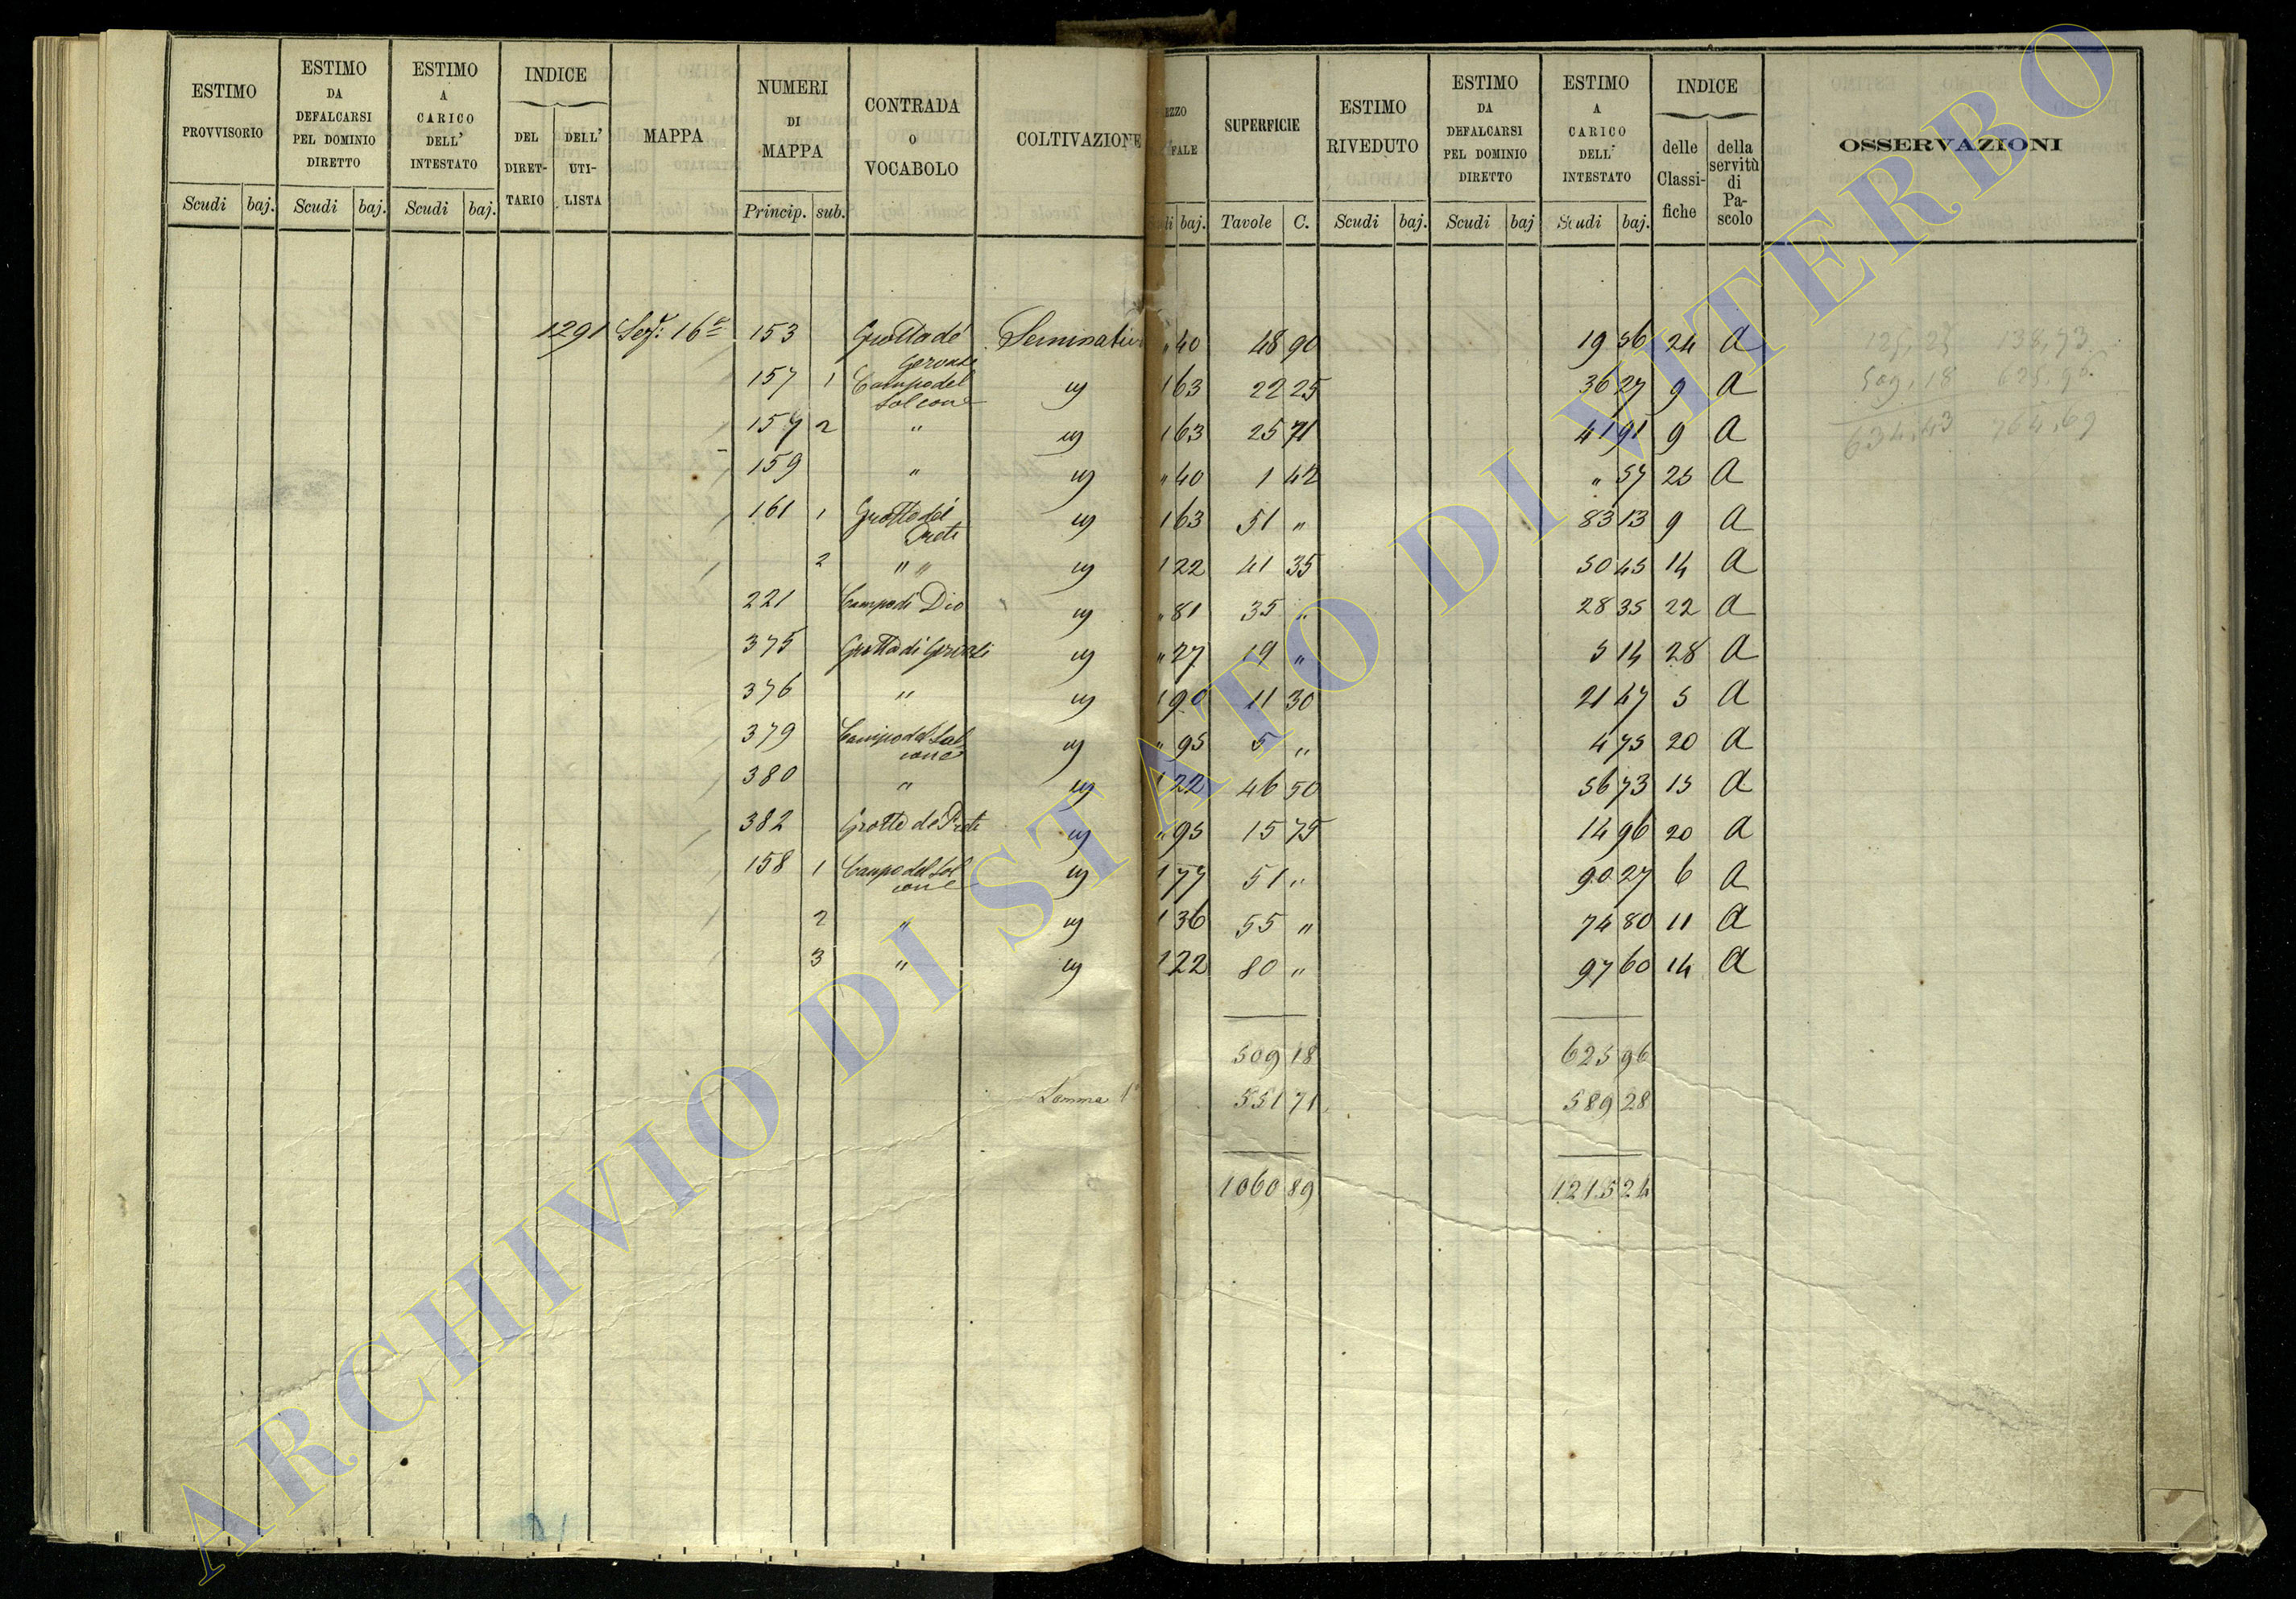 ESTIMO PROVVISORIO Scudi baj.
ESTIMO DA DEFALCARSI PEL DOMINIO DIRETTO Scudi baj.
ESTIMO A CARICO DELL' INTESTATO Scudi baj.
INDICE DEL DIRETTARIO DELL' UTILISTA
MAPPA
NUMERI DI MAPPA Princip. sub.
CONTRADA O VOCABOLO
COLTIVAZIONE
SUPERFICIE Tavole C.
ESTIMO RIVEDUTO Scudi baj.
ESTIMO DA DEFALCARSI PEL DOMINIO DIRETTO Scudi baj
ESTIMO A CARICO DELL' INTESTATO Scudi baj.
INDICE delle Classifiche della servitù di Pascolo
OSSERVAZIONI
1291 Sez: 16a 153 Grotta de Seminativo " 40 48 90 19 56 24 A 125,25 138,73
157 1 Campo del Salcone 1 63 22 25 36 27 9 A 509,18 625,96
157 2 " 1 63 25 71 41 91 9 A 634,43 764,69
159 " " 40 1 42 " 57 25 A
161 1 Grotte del Prete 1 63 51 " 83 13 9 A
2 " " 1 22 41 35 50 45 14 A
221 Campo di Dio " 81 35 " 28 35 22 A
375 Grotta di " 27 19 " 5 14 28 A
376 " 1 90 11 30 21 47 5 A
379 Campo del Salcone " 95 5 " 4 75 20 A
380 " 1 22 46 50 56 73 15 A
382 Grotte de Preti " 95 15 75 14 96 20 A
158 1 Campo del Salcone 1 77 51 " 90 27 6 A
2 " 1 36 55 " 74 80 11 A
3 " 1 22 80 " 97 60 14 A
509 18 625 96
Somma 1a 551 71 589 28
1060 89 1215 24
ARCHIVIO DI STATO DI VITERBO